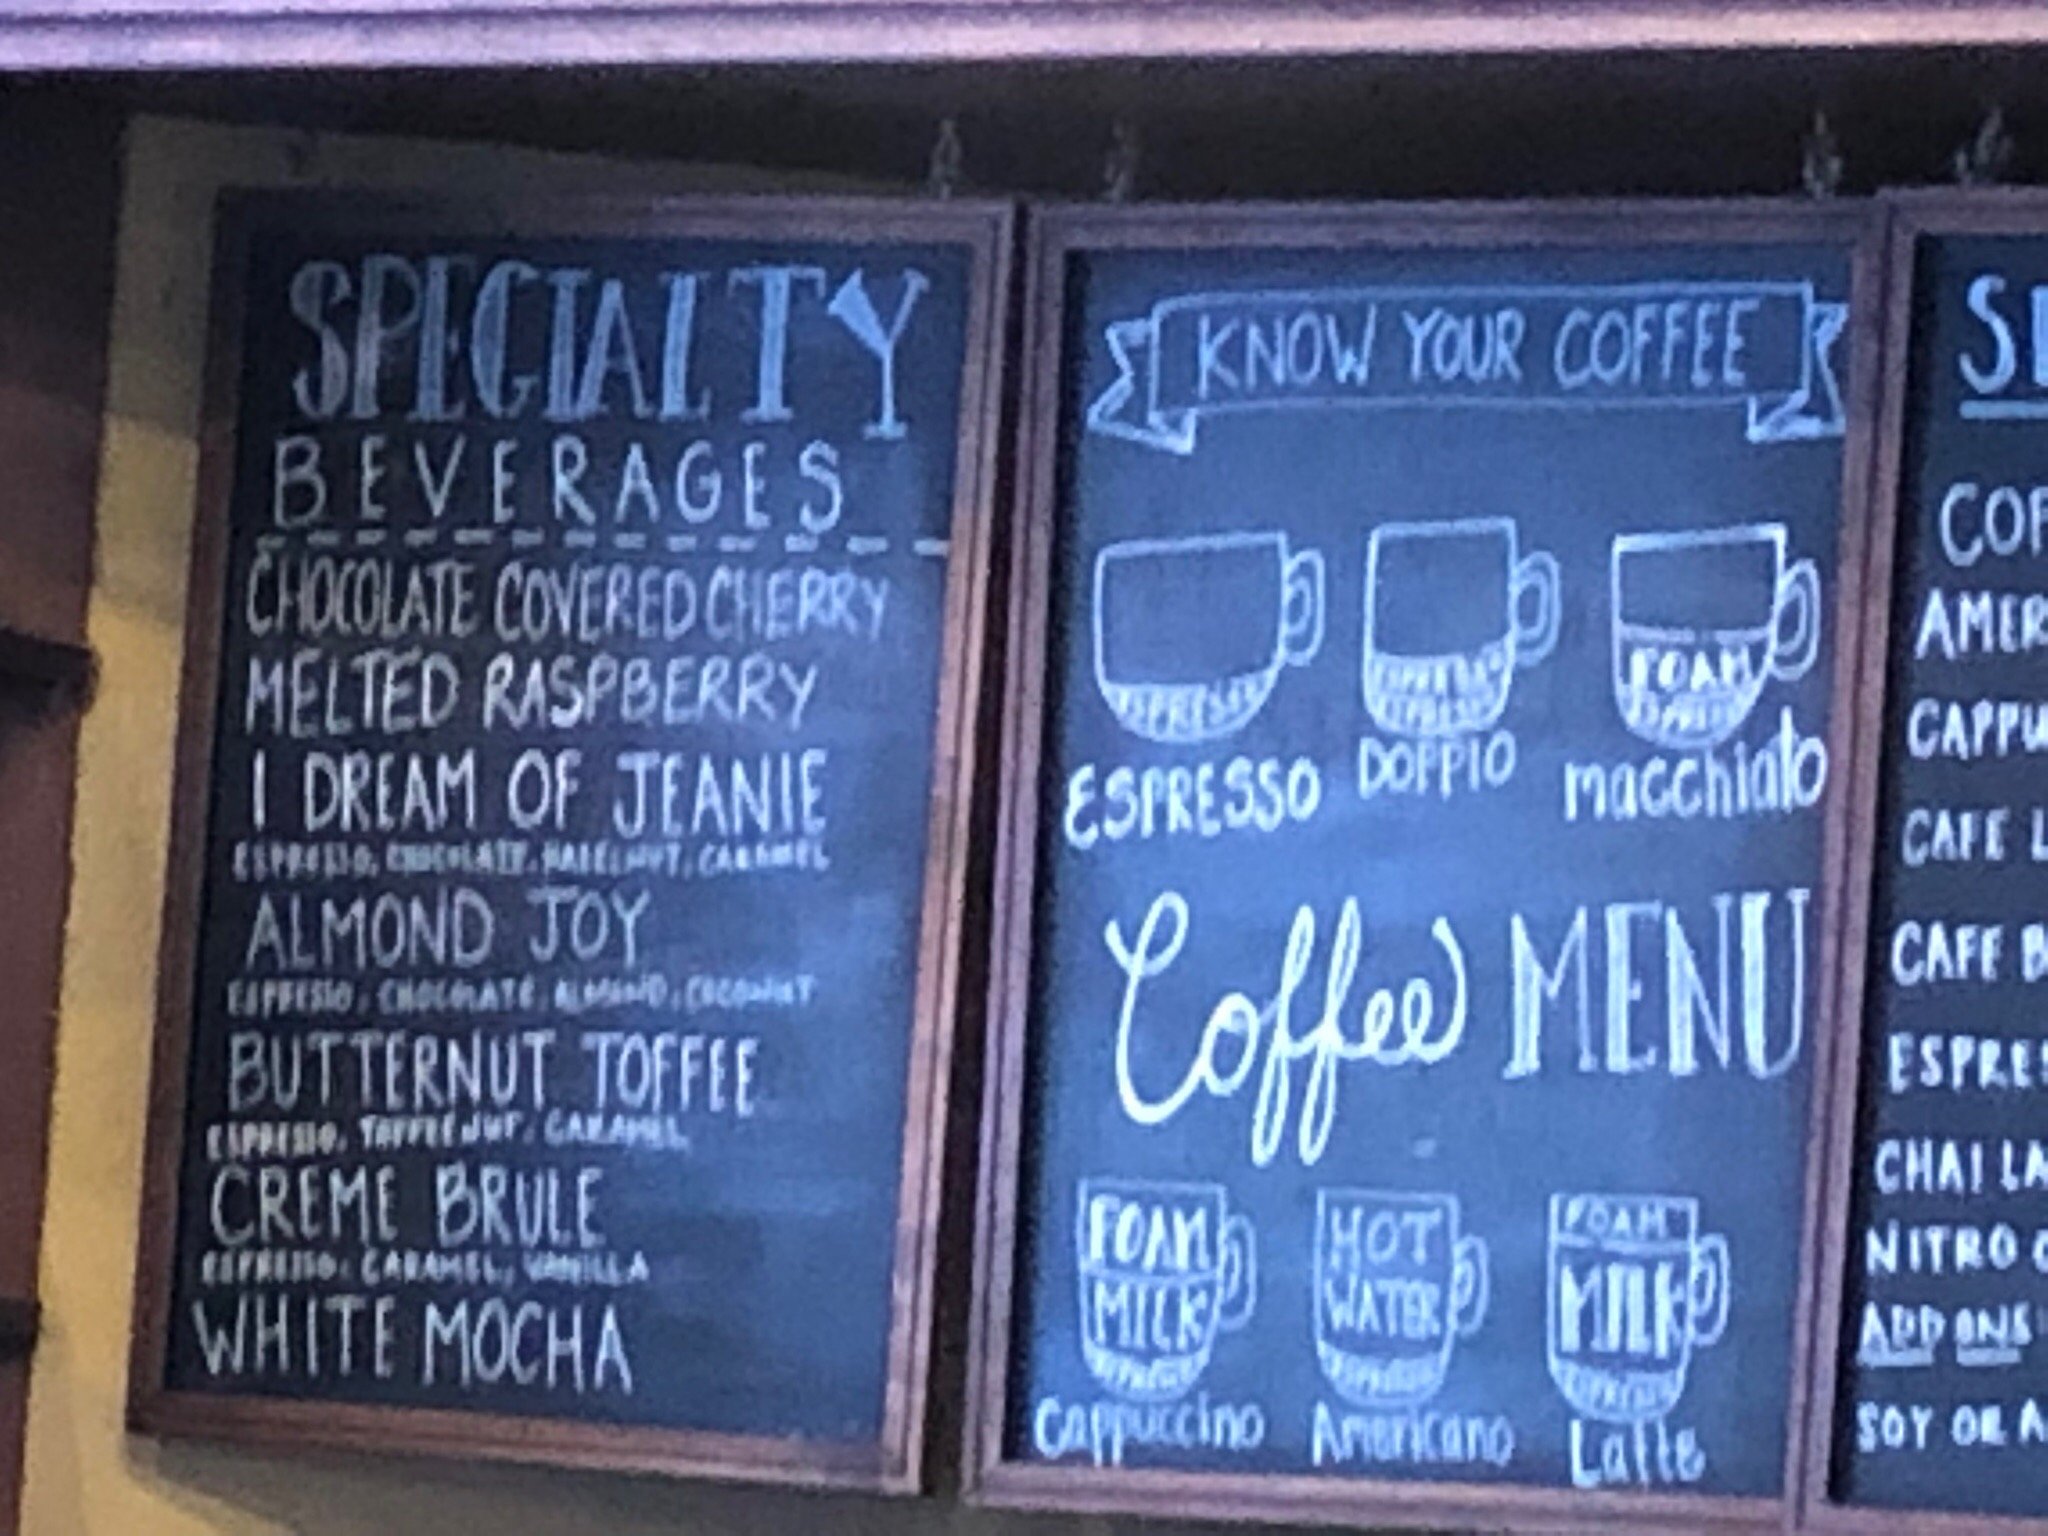 SPECIALTY
BEVERAGES
CHOCOLATE COVERED CHERRY
MELTED RASPBERRY
I DREAM OF JEANIE
ESPRESSO, CHOCOLATE, HAZELNUT, CARAMEL
ALMOND JOY
ESPRESSO, CHOCOLATE, ALMOND, COCONUT
BUTTERNUT TOFFEE
ESPRESSO, TOFFEENUT, CARAMEL
CREME BRULE
ESPRESSO, CARAMEL, VANILLA
WHITE MOCHA
KNOW YOUR COFFEE
ESPRESSO
ESPRESSO
ESPRESSO
FOAM
ESPRESSO
ESPRESSO
DOPPIO
macchiato
Coffee MENU
FOAM
MILK
ESPRESSO
HOT
WATER
ESPRESSO
FOAM
MILK
ESPRESSO
Cappuccino
Americano
Latte
COF
AMER
CAPPU
CAFE L
CAFE B
ESPRES
CHAI LA
NITRO C
ADD ONS
SOY OR A